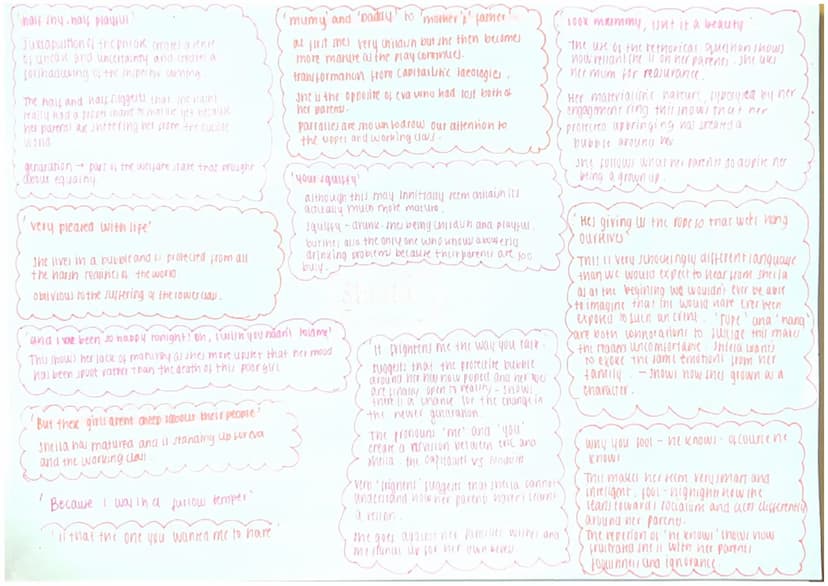 'half shy, half playful'
Juxtaposition of the phrase creates a sense
of unease and uncertainty and creates a
foreshadowing of the inspector coming.
The half and half suggests that she hasn't
really had a proper chance to mature yet because
her parents are sheltering her from the outside
world.
generation → part of the welfare state that brought
about equality
'mumy' and 'daddy' to 'mother's' 'father'
at first she's very childish but she then becomes
more mature as the play continues.
transformation from capitalistic ideologies.
she is the opposite of eva who had lost both of
her parents.
Parallels are shown to draw our attention to
the upper and working class.
'look mummy, isn't it a beauty'
The use of the rhetorical question shows
how reliant she is on her parents. She uses
her mum for reassurance.
Her materialistic nature is typified by her
engagement ring this shows that her
protected upbringing has created a
bubble around her
She follows what her parents do despite her
being a grown up.
'your squiffy'
although this may initially seem childish its
actually much more mature.
squiffy - drunk. shes being childish and playful,
but she's also the only one who knows about eric
drinking problems because their parents are too
busy.
'Very pleased with life'
She lives in a bubble and is protected from all
the harsh realities of the world.
oblivious to the suffering of the lower class.
'and I've been so happy tonight! oh, I wish you hadn't told me!'
This shows her lack of maturity as shes more upset that her mood
has been spoilt rather than the death of this poor girl
'But these girls arent cheap labour their people'
Sheila has matured and is standing up for eva
and the working class.
'Because I was in a furious temper'
'is that the one you wanted me to have'
'it frightens me the way you talk'
suggests that the protective bubble
around her has now popped and her eyes
are finally open to reality - shows
there is a chance for the change in
the newer generation.
The pronouns 'me' and 'you'
create a division between eric and
sheila. the capitalists vs.
Verb 'frightens' suggests that sheila cannot
understand how her parents haven't learnt
a lesson.
she goes against her families wishes and
she stands up for her own beliefs.
'He's giving us the rope so that we'll hang
ourselves'
This is very shockingly different language
than we would expect to hear from sheila
as at the beginning we wouldn't ever be able
to imagine that she would have ever been
exposed to such an event. 'rope' and 'hang'
are both connotations to suicide this makes
the reader uncomfortable. sheila wants
to evoke the same emotions from her
family. - shows how she's grown as a
character.
why you fool - he knows - of course he
knows
This makes her seem very smart and
intelligent. fool - highlights how she
leans towards socialism and acts differently
around her parents.
The repetion of 'he knows' shows how
frustrated she is with her parents
foolishness and ignorance